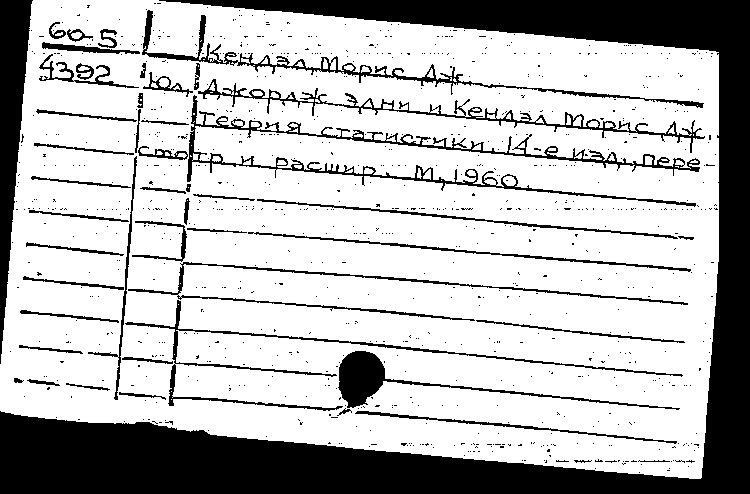 60-5
Кендэл, Морис Дж.
4392
Юл, Джордж Эдни и Кендэл, Морис Дж.
Теория статистики. 14-е изд., пере
смотр и расшир. М., 1960.